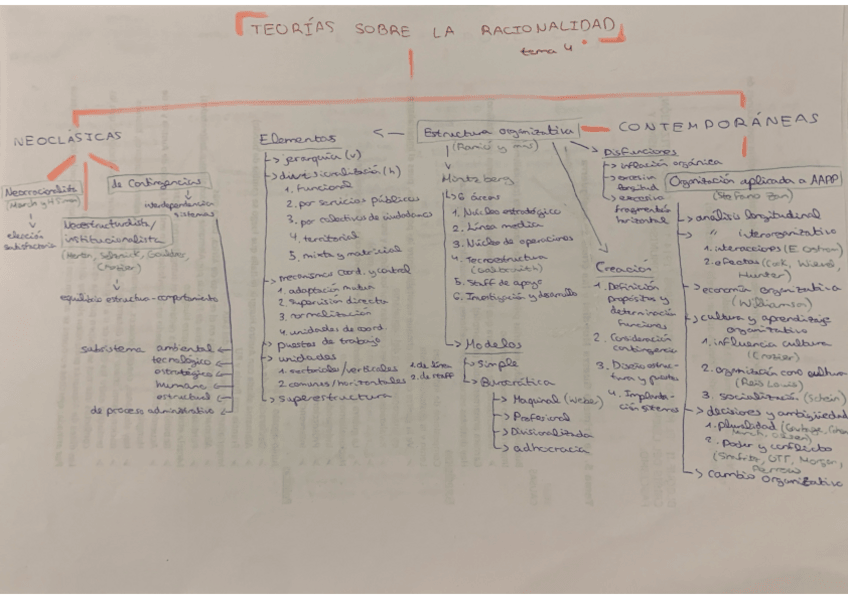 TEORÍAS SOBRE LA RACIONALIDAD
tema 4
NEOCLÁSICAS
Neorracionalista
(March y H Simon)
elección
satisfactoria
de Contingencias
interdependencia
sistemas
Neoestructuralista/
institucionalista
(Merton, Selznick, Gouldner,
Crozier)
equilibrio estructura-comportamiento
subsistema ambiental
tecnológico
estratégico
humano
estructural
de proceso administrativo
Elementos
jerarquía (v)
divisionalización (h)
1. funcional
2. por servicios públicos
3. por colectivos de ciudadanos
4. territorial
5. mixta y matricial
mecanismos coord. y control
1. adaptación mutua
2. supervisión directa
3. normalización
4. unidades de coord.
puestos de trabajo
unidades
1. sectoriales/verticales
2. comunes/horizontales
1. de línea
2. de staff
superestructura
Estructura organizativa
(Ramió y más)
Mintzberg
6 áreas
1. Núcleo estratégico
2. Línea media
3. Núcleo de operaciones
4. Tecnoestructura
(Galbraith)
5. Staff de apoyo
6. Investigación y desarrollo
Modelos
Simple
Burocrática
Maquinal (Weber)
Profesional
Divisionalizada
adhocracia
CONTEMPORÁNEAS
Disfunciones
inflación orgánica
excesiva
longitud
excesiva
fragmentación
horizontal
Creación
1. Definición
propósitos y
determinación
funciones
2. Consideración
contingencia
3. Diseño estruc-
tura y puestos
4. Implanta-
ción sistemas
Organización aplicada a AAPP
(Stefano Zan)
análisis longitudinal
" interorganizativo
1. interacciones (E. Ostrom)
2. efectos (Cook, Wiewel,
Hunter)
economía organizativa
(Williamson)
cultura y aprendizaje
organizativo
1. influencia cultura
(Crozier)
2. organización como cultura
(Reis Louis)
3. socialización (Schein)
decisiones y ambigüedad
1. pluralidad
March, Olsen)
2. Poder y conflicto
(Shafritz, OTT, Morgan,
Perrow
cambio organizativo